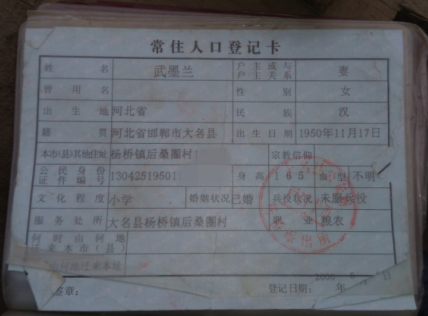 常住人口登记卡
姓名 武墨兰 户主或与户主关系 妻
曾用名 性别 女
出生地 河北省 民族 汉
籍贯 河北省邯郸市大名县 出生日期 1950年11月17日
本市(县)其他住址 杨桥镇后桑圈村 宗教信仰
公民身份证件编号 13042519501 身高 165 血型 不明
文化程度 小学 婚姻状况 已婚 兵役状况 未服兵役
服务处所 大名县杨桥镇后桑圈村 职业 粮农
何时由何地迁来本市(县)
登记日期: 年
签章: